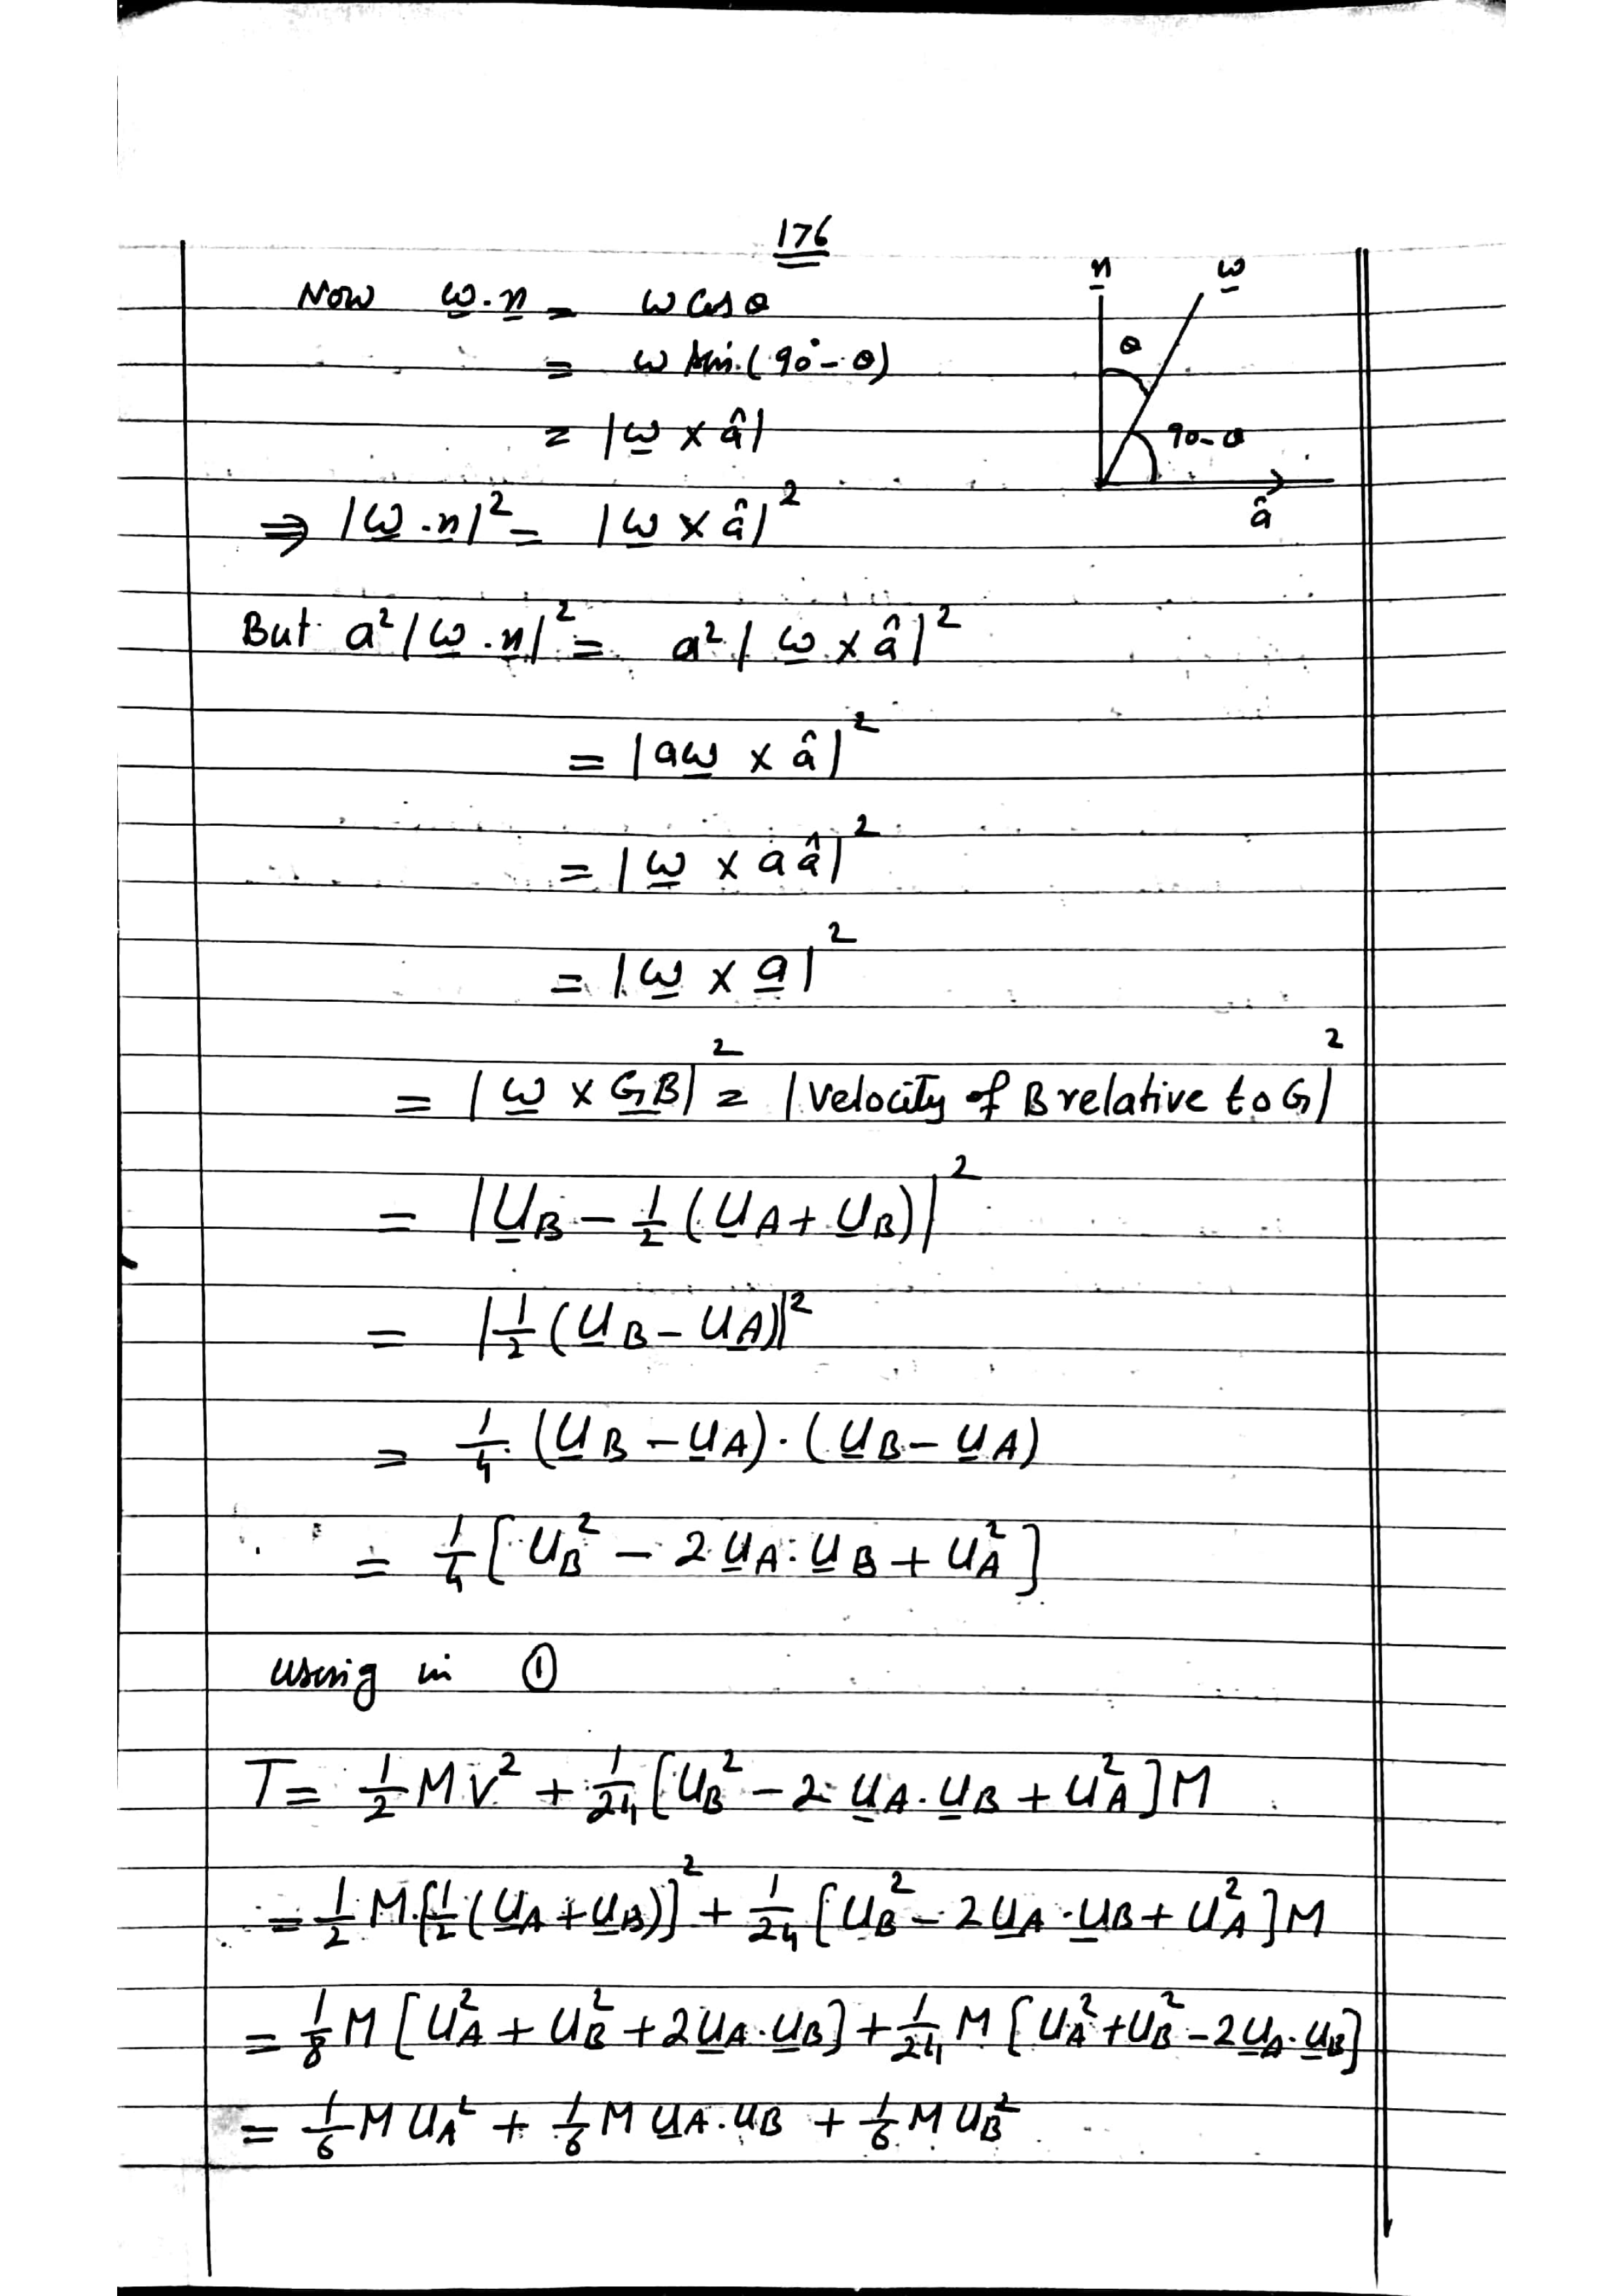 176
Now ω̲.n̲ = ω Cos θ
n̲ ω̲
= ω Sin.(90° - θ)
θ
= |ω̲ × â|
90-θ
â
⇒ |ω̲.n̲|² = |ω̲ × â|²
But a²|ω̲.n̲|² = a²|ω̲ × â|²
= |aω̲ × â|²
= |ω̲ × aâ|²
= |ω̲ × a̲|²
= |ω̲ × G̲B̲|² = |Velocity of B relative to G|²
= |U̲B - 1/2 (U̲A + U̲B)|²
= |1/2 (U̲B - U̲A)|²
= 1/4 (U̲B - U̲A)·(U̲B - U̲A)
= 1/4 [UB² - 2U̲A·U̲B + UA²]
using in ①
T = 1/2 MV² + 1/24 [UB² - 2U̲A·U̲B + UA²]M
= 1/2 M[1/2 (U̲A + U̲B)]² + 1/24 [UB² - 2U̲A·U̲B + UA²]M
= 1/8 M [UA² + UB² + 2U̲A·U̲B] + 1/24 M [UA² + UB² - 2U̲A·U̲B]
= 1/6 M UA² + 1/6 M U̲A·U̲B + 1/6 M UB²